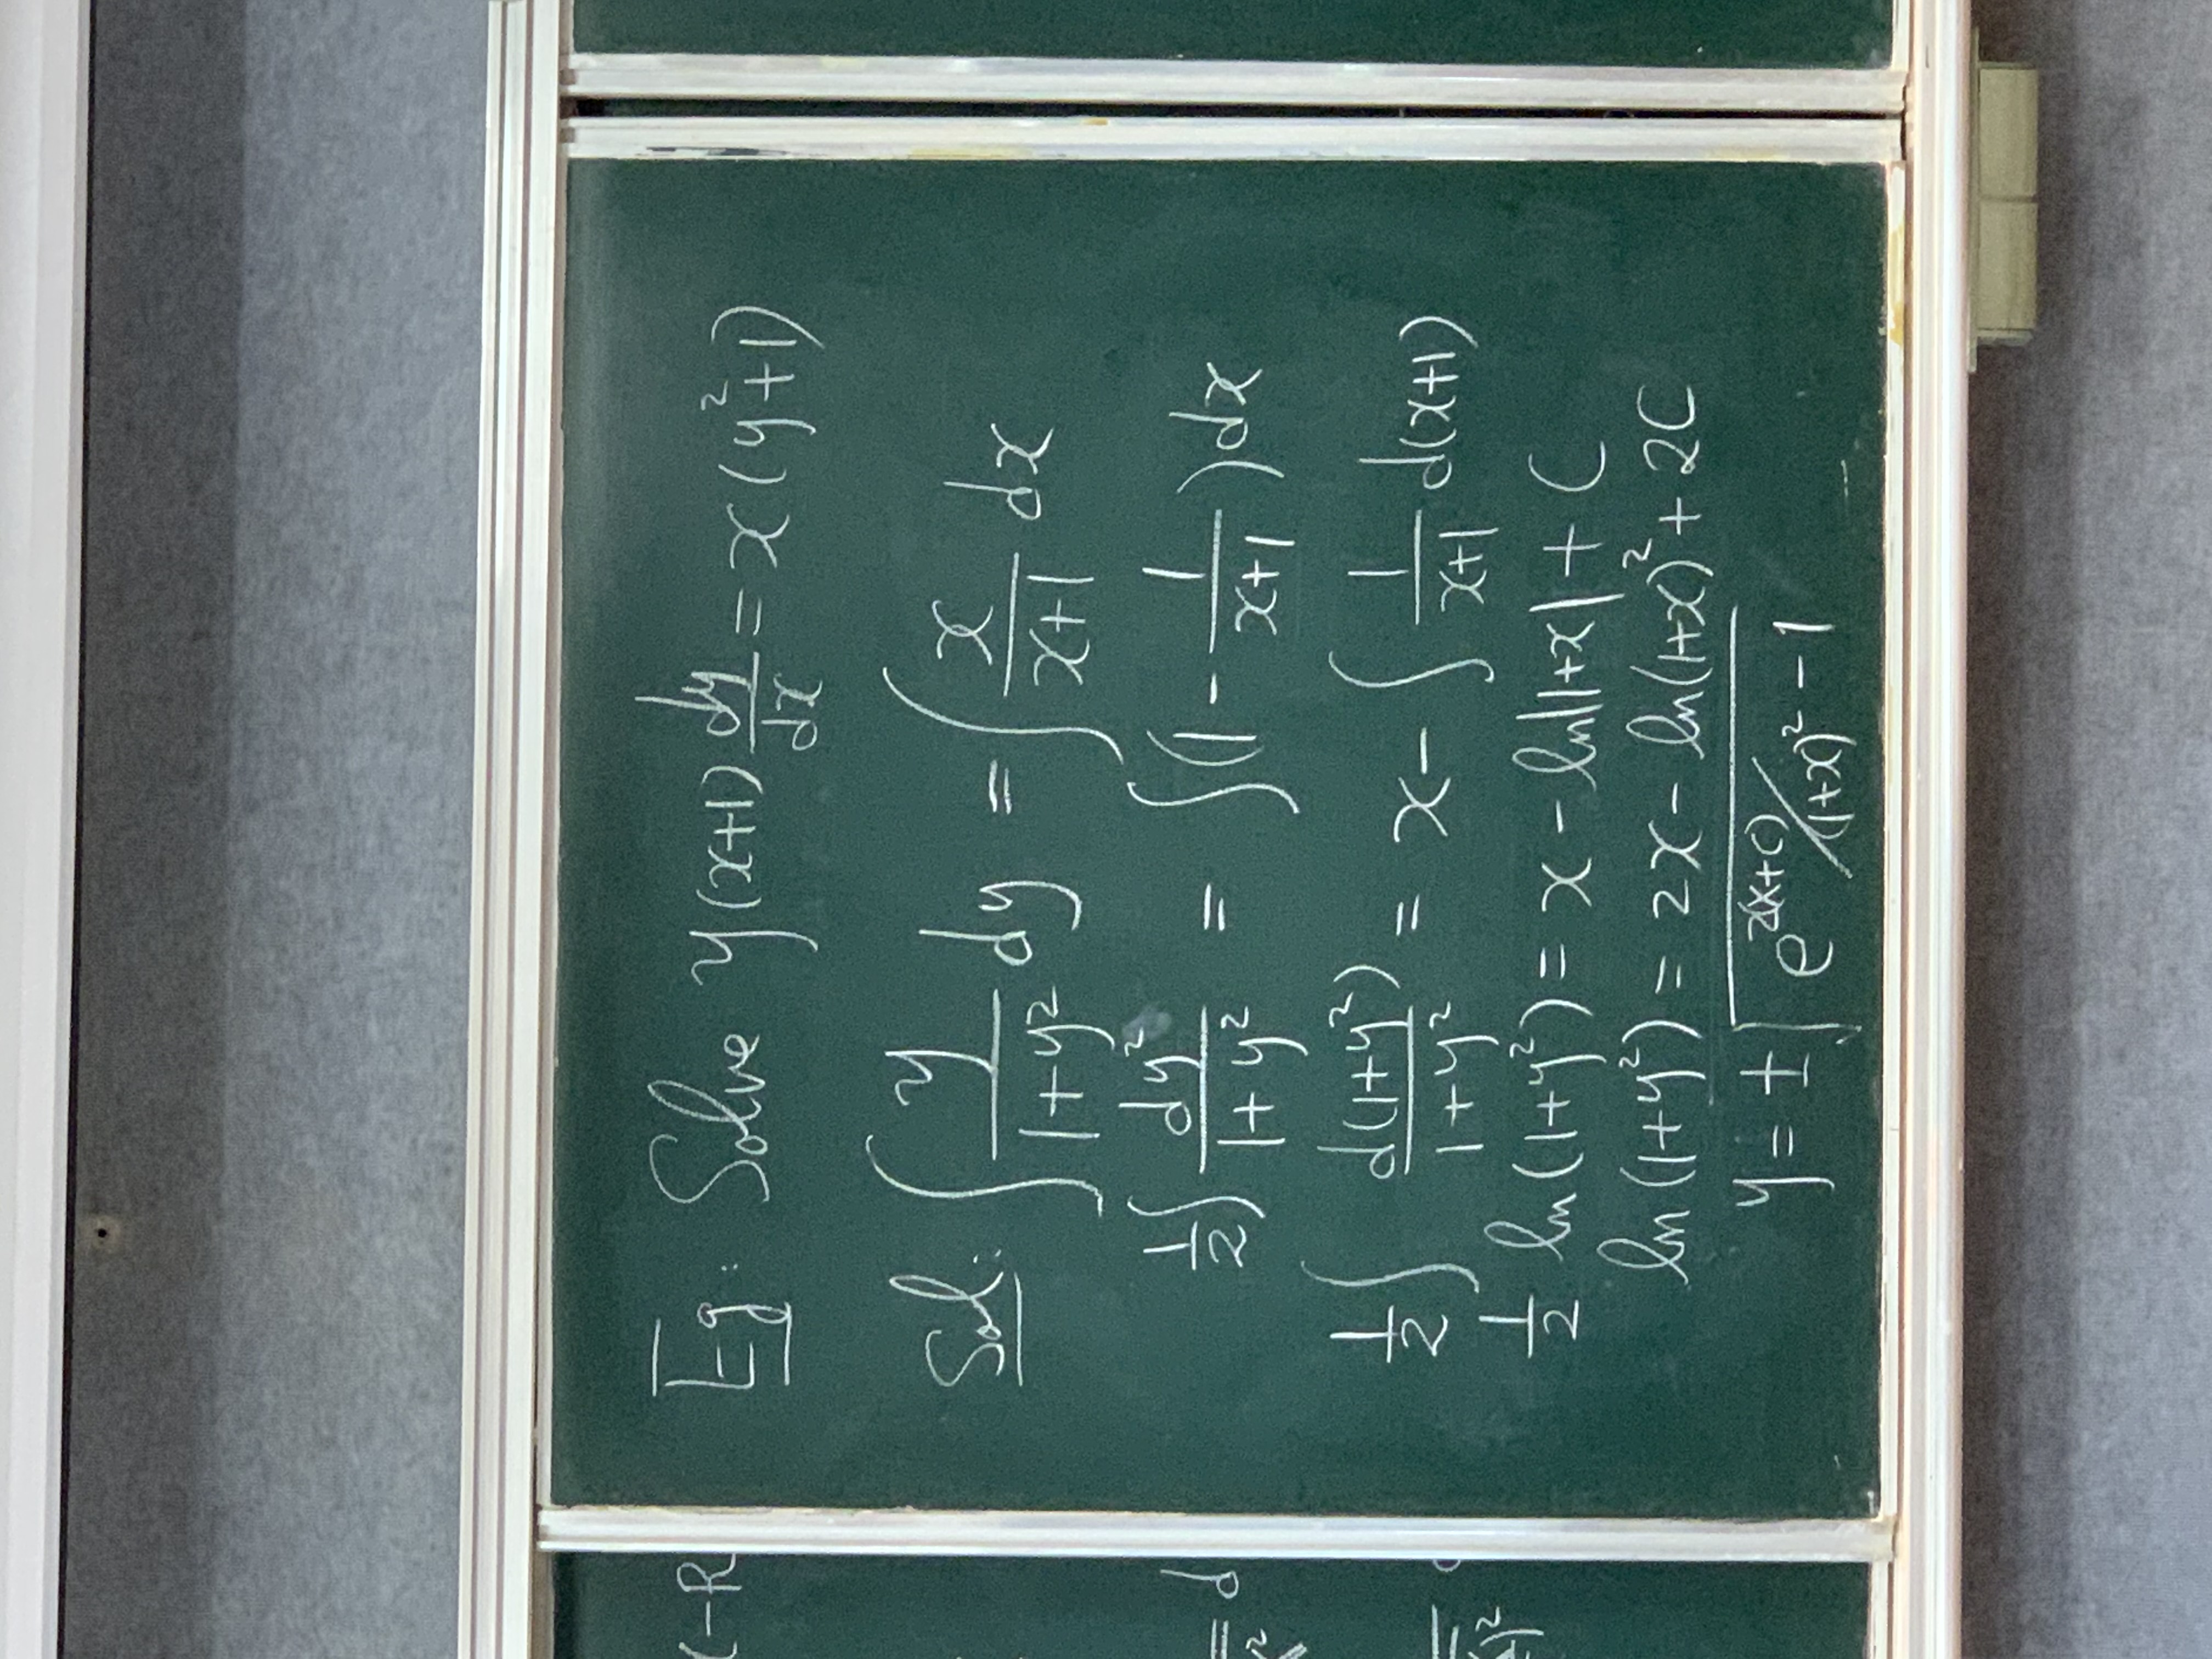 Eg: Solve y(x+1) dy/dx = x(y²+1)
Sol: ∫ y/(1+y²) dy = ∫ x/(x+1) dx
1/2 ∫ dy²/(1+y²) = ∫(1 - 1/(x+1))dx
1/2 ∫ d(1+y²)/(1+y²) = x - ∫ 1/(x+1) d(x+1)
1/2 ln(1+y²) = x - ln|1+x| + C
ln(1+y²) = 2x - ln(1+x)² + 2C
y = ±√(e^(2(x+C))/(1+x)² - 1)